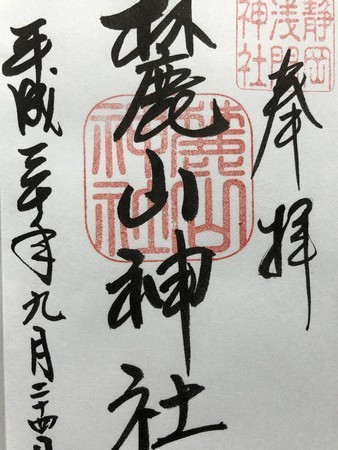 静岡
浅間
神社
奉拝
麓山神社
麓山
神社
平成三十年九月二十四日